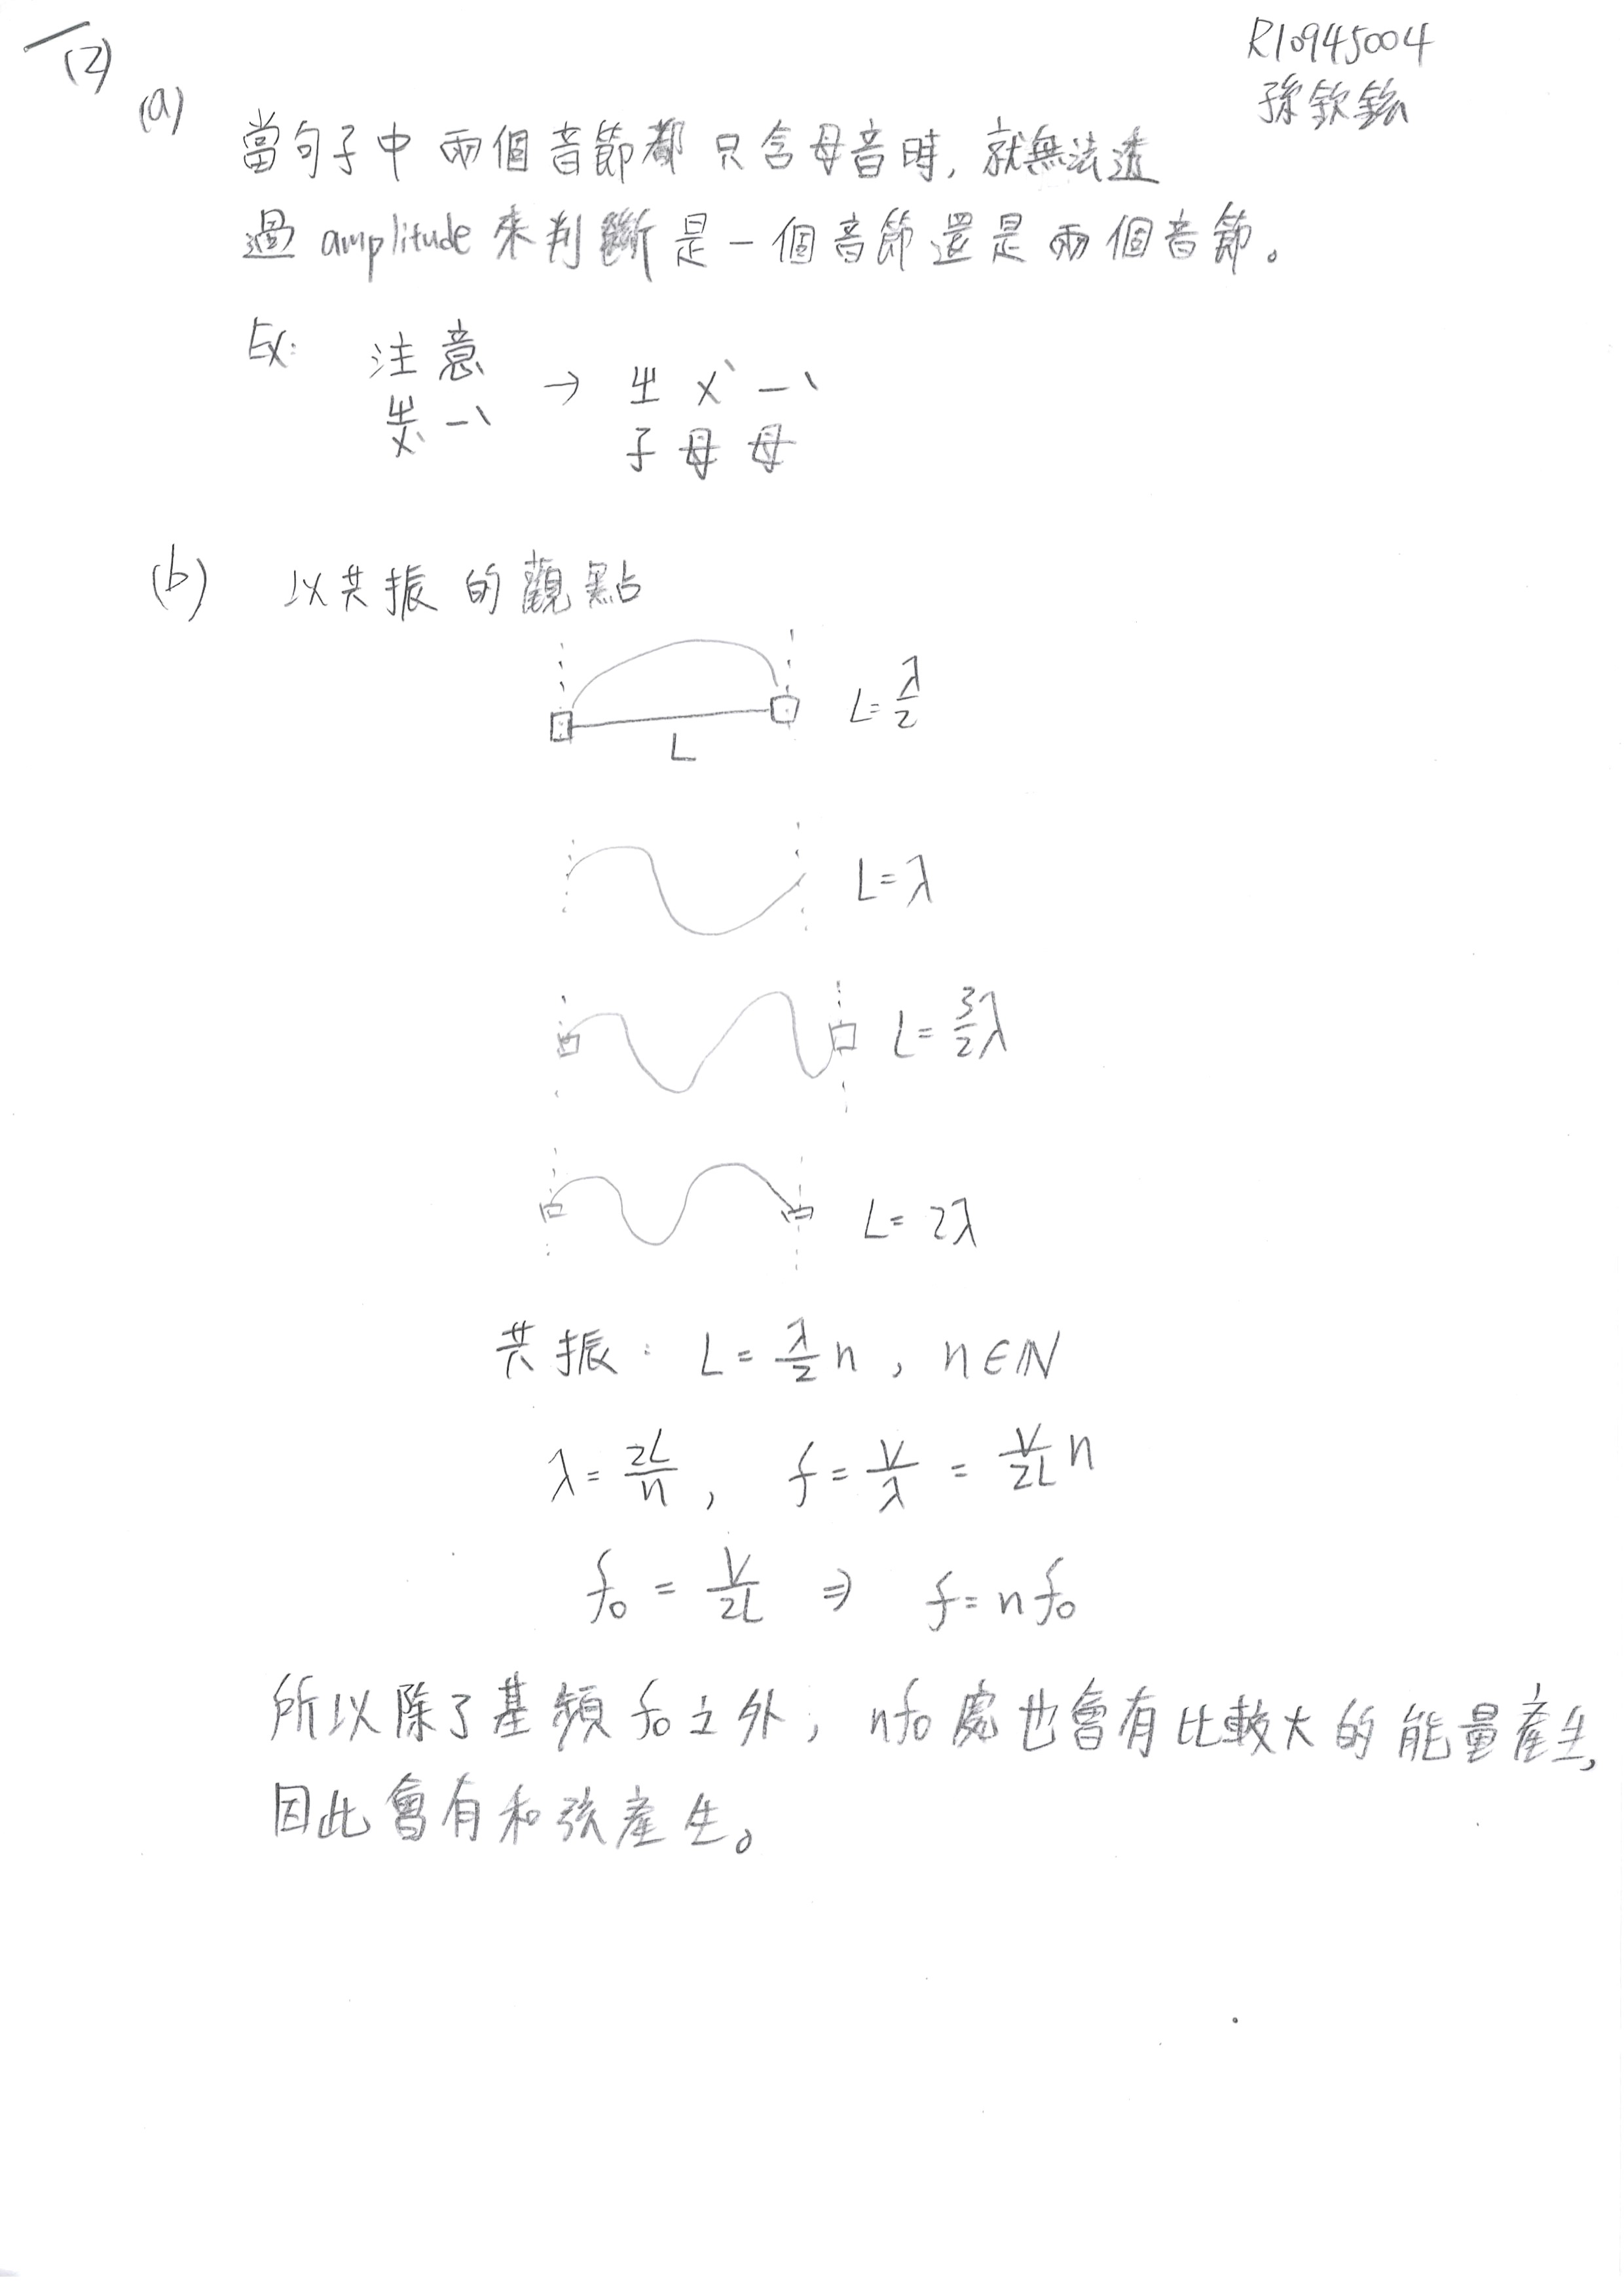 R10945004
孫欽鉉
(2)
(a)
當句子中兩個音節都只含母音時, 就無法透
過 amplitude 來判斷是一個音節還是兩個音節。
Ex: 注意 → ㄓ ㄨˋ ㄧˋ
ㄓㄨˋ ㄧˋ 子 母 母
(b) 以共振的觀點
L = λ/2
L
L = λ
L = 3/2 λ
L = 2λ
共振: L = λ/2 n , n ∈ ℕ
λ = 2L/n , f = V/λ = V/2L n
f₀ = V/2L ⇒ f = nf₀
所以除了基頻 f₀ 之外, nf₀ 處也會有比較大的能量產生,
因此會有和弦產生。